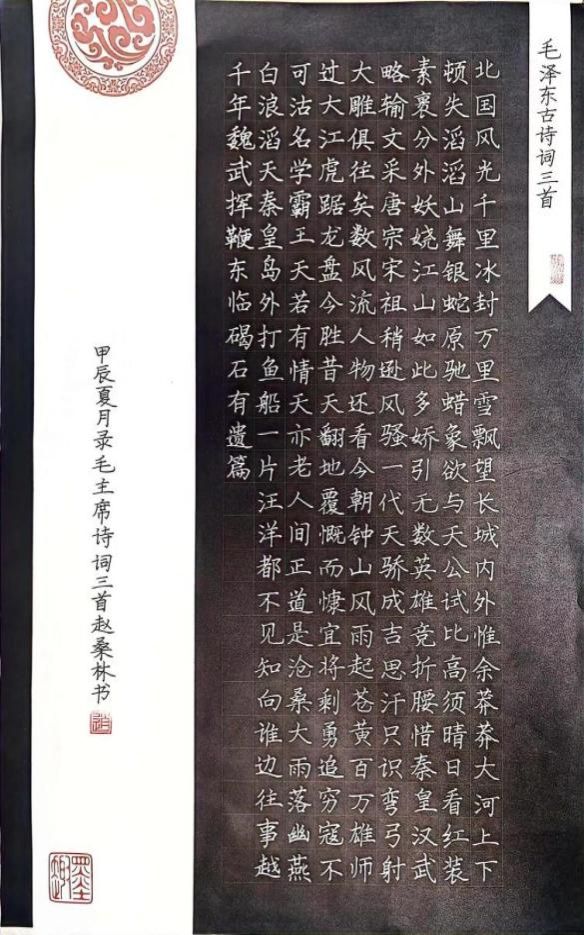 毛泽东古诗词三首
北国风光千里冰封万里雪飘望长城内外惟余莽莽大河上下
顿失滔滔山舞银蛇原驰蜡象欲与天公试比高须晴日看红装
素裹分外妖娆江山如此多娇引无数英雄竞折腰惜秦皇汉武
略输文采唐宗宋祖稍逊风骚一代天骄成吉思汗只识弯弓射
大雕俱往矣数风流人物还看今朝钟山风雨起苍黄百万雄师
过大江虎踞龙盘今胜昔天翻地覆慨而慷宜将剩勇追穷寇不
可沽名学霸王天若有情天亦老人间正道是沧桑大雨落幽燕
白浪滔天秦皇岛外打鱼船一片汪洋都不见知向谁边往事越
千年魏武挥鞭东临碣石有遗篇
甲辰夏月录毛主席诗词三首赵桑林书